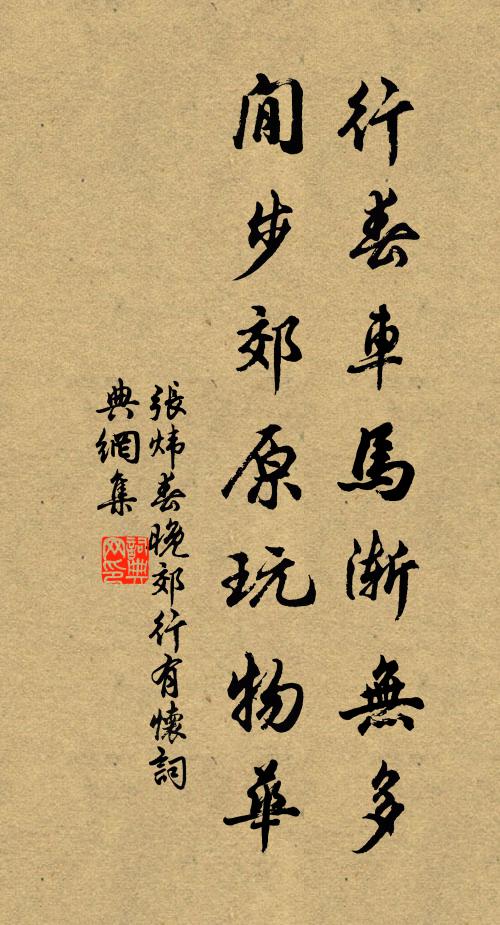 行春車馬漸無多
閒步郊原玩物華
張煒春晚郊行有懷詞
典網集
詞典
网印